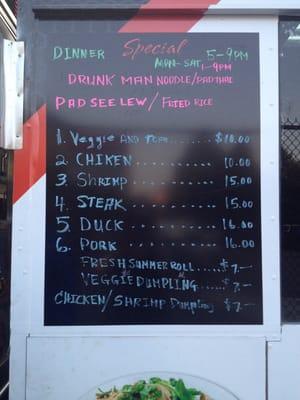 DINNER Special 5-9PM
MON-SAT 1-9PM
DRUNK MAN NOODLE/PAD THAI
PAD SEE LEW/FRIED RICE
1. Veggie AND TOFU....... $10.00
2 CHIKEN.......... 10.00
3. Shrimp.......... 15.00
4. STEAK.......... 15.00
5. DUCK.......... 16.00
6. PORK.......... 16.00
FRESH SUMMER ROLL.....$7.-
VEGGIE DUMPLING......$7.-
CHICKEN/SHRIMP Dumpling $7.-